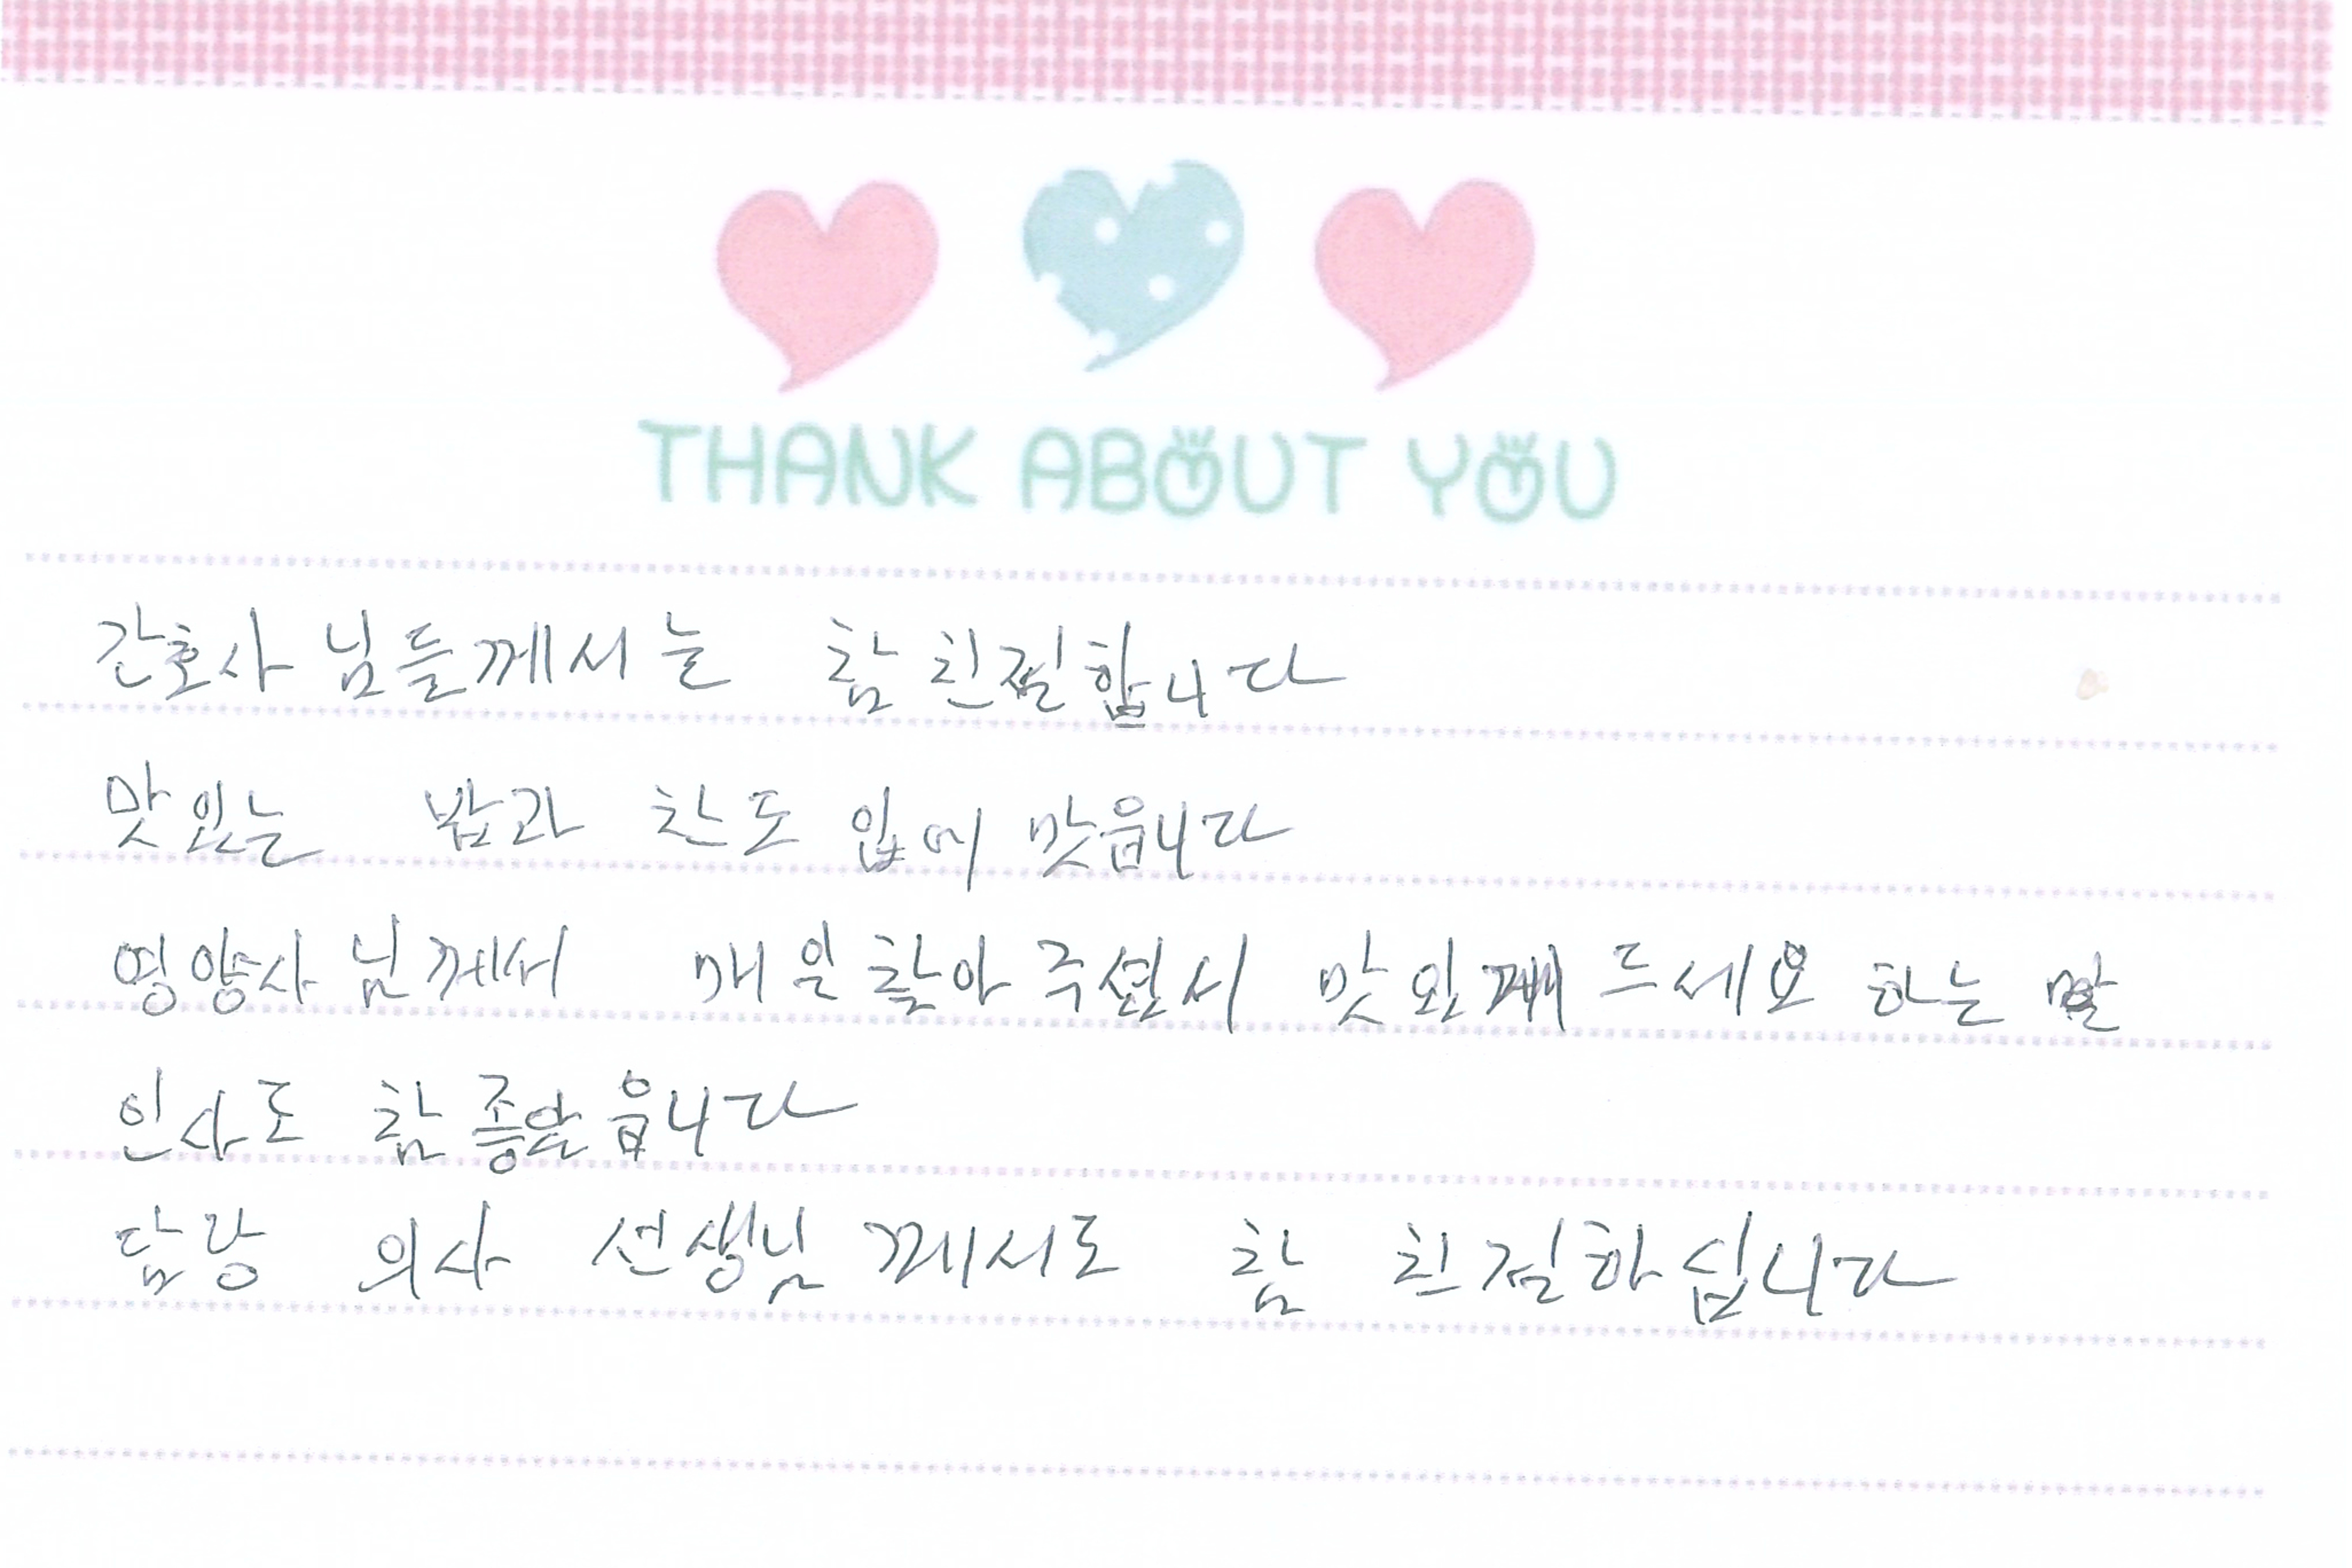 THANK ABOUT YOU
간호사님들께서는 참 친절합니다
맛있는 밥과 찬도 입에 맛읍니다
영양사님께서 매일 찾아 주셨서 맛있께 드세요 하는 말
인사도 참 좋았읍니다
담당 의사 선생님 께서도 참 친절하십니다